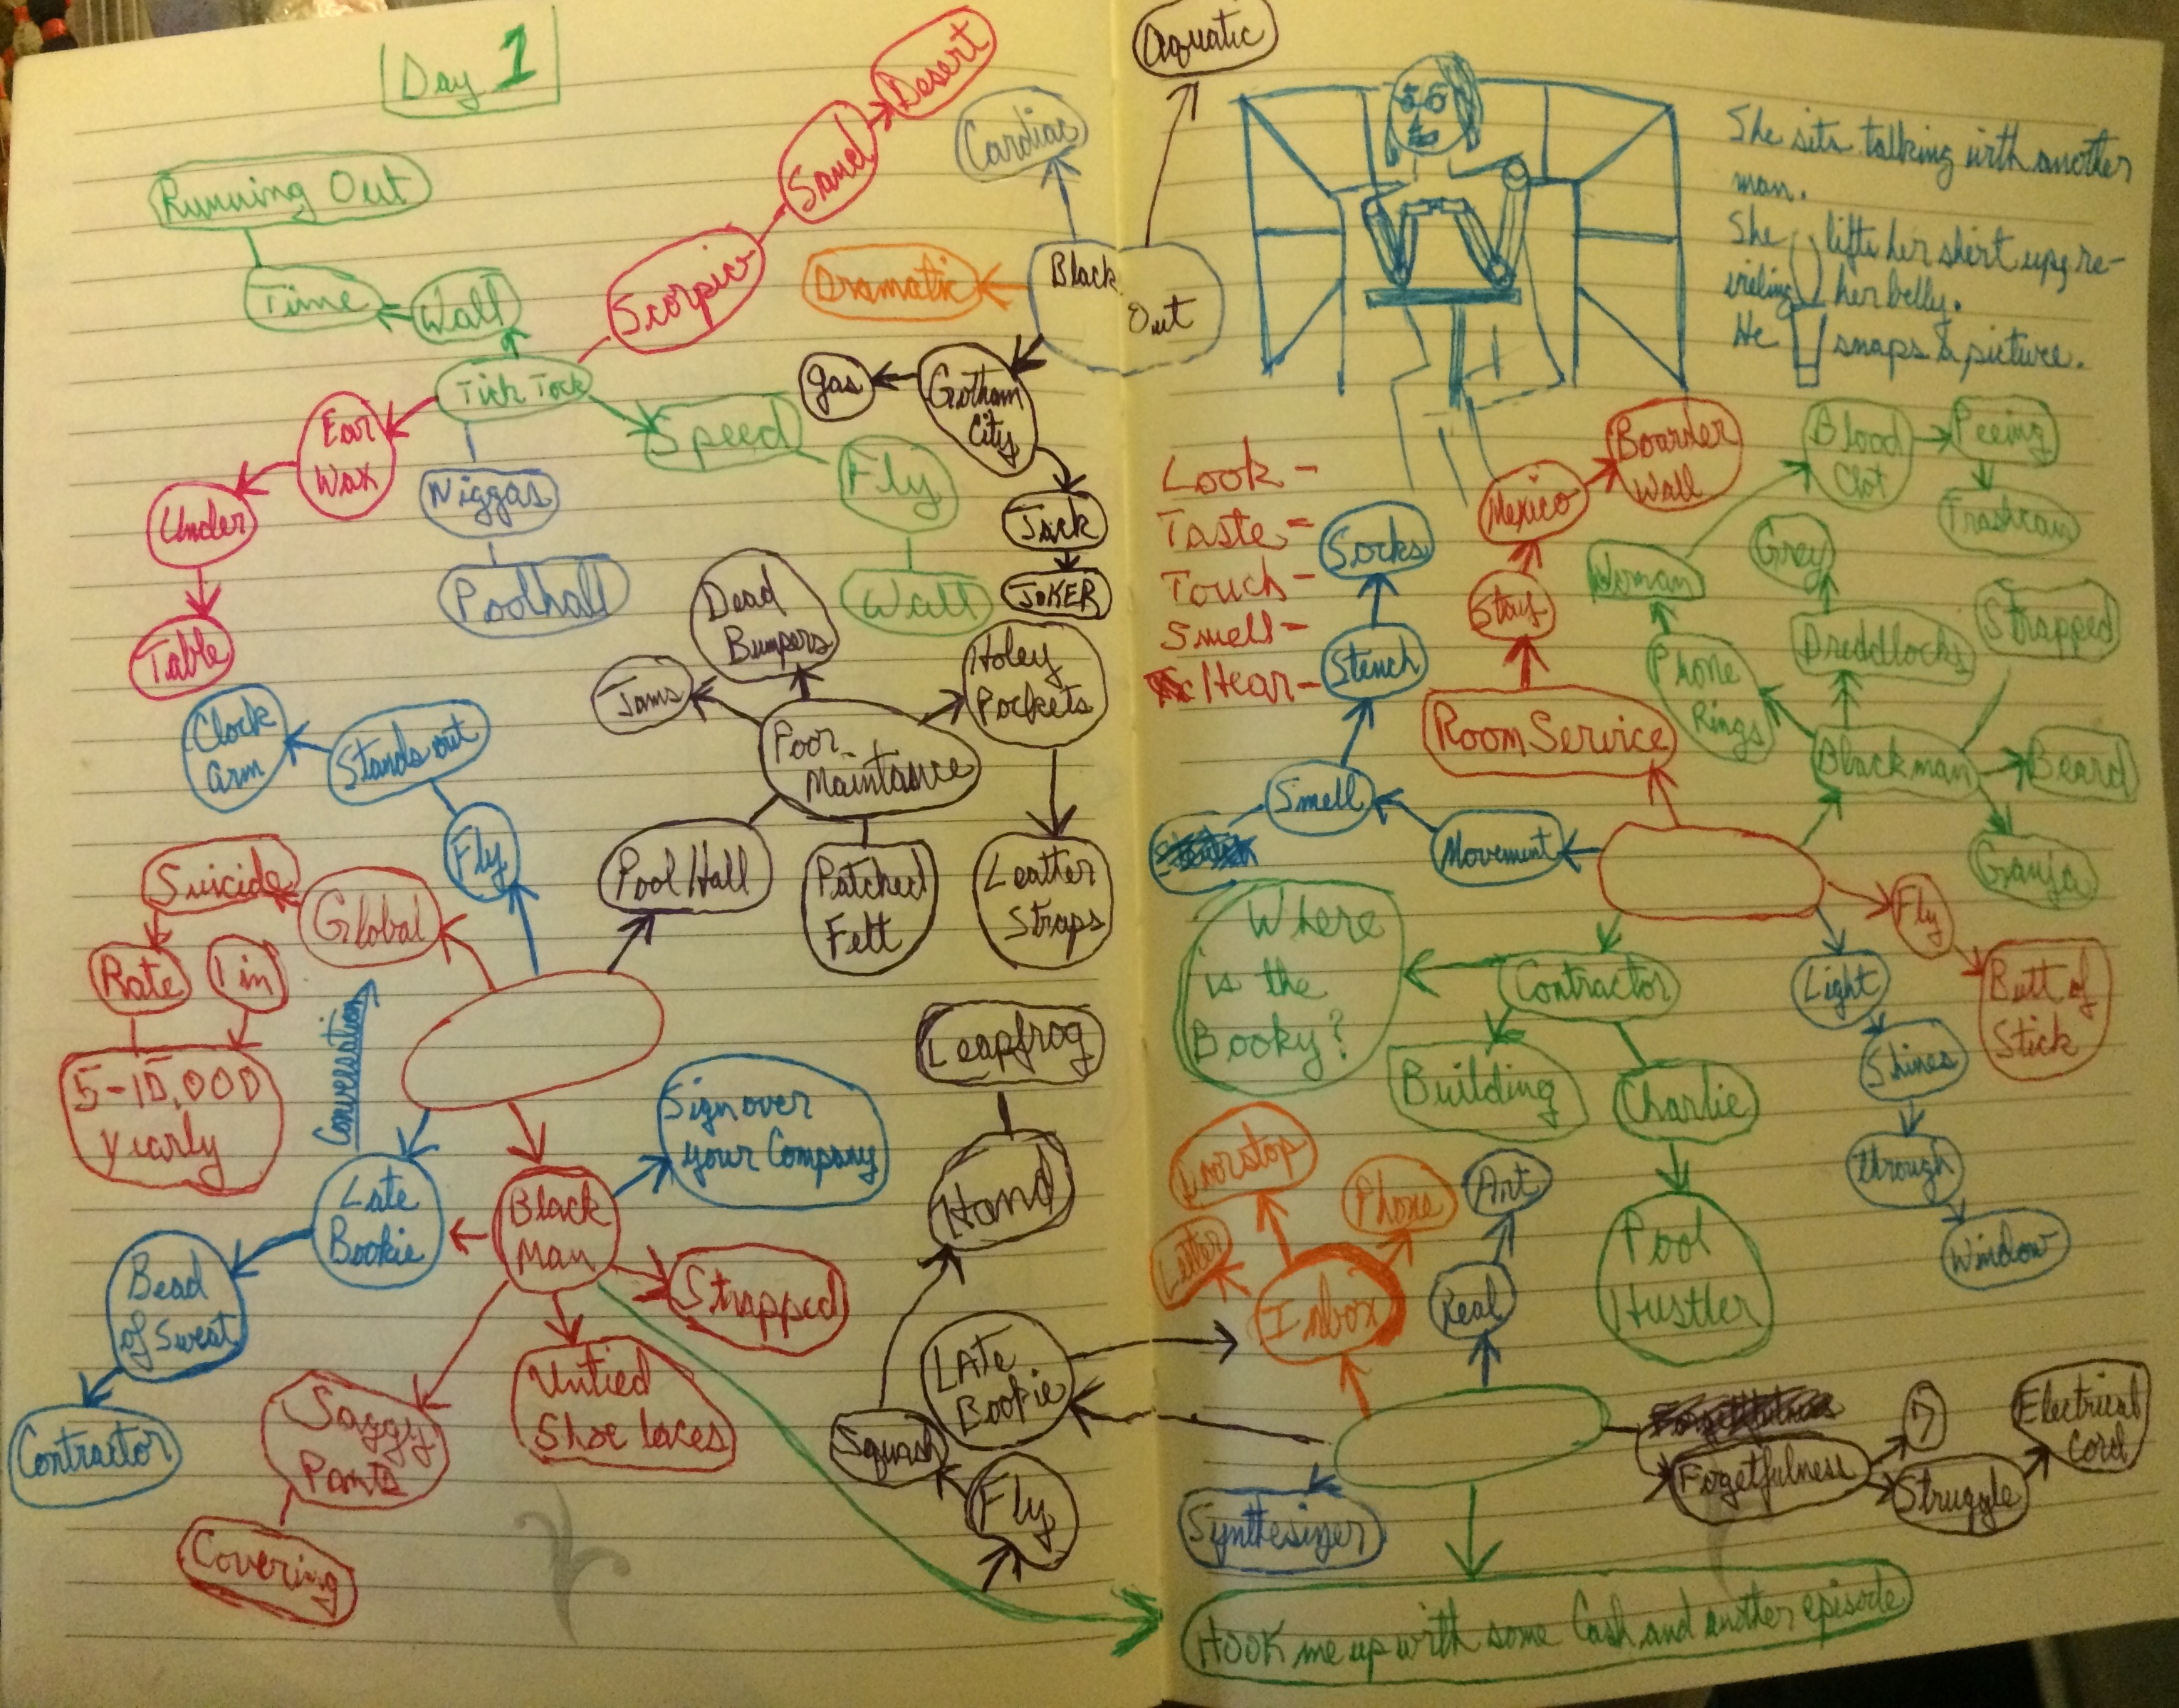 Day 1
Running Out
Time
Wall
Tick Tock
Scorpio
Sand
Desert
Cardiac
Aquatic
Dramatic
Black
Out
gas
Gotham
City
Jack
JOKER
Ear
Wax
Under
Table
Niggas
Poolhall
Speed
Fly
Wall
Dead
Bumpers
Jams
Holey
Pockets
Poor
Maintance
Pool Hall
Patched
Felt
Leatter
Straps
Clock
arm
Stands out
Fly
Suicide
Global
Rate
1 in
5-10,000
yearly
Conversation
Late
Bookie
Black
Man
Sign over
your Company
Strapped
Untied
Shoe laces
Saggy
Pants
Covering
Bead
of Sweat
Contractor
Leapfrog
Hand
LATE
Bookie
Squash
Fly
She sits talking with another
man.
She lifts her shirt up, re-
vieling her belly.
He snaps a picture.
Look -
Taste -
Touch -
Smell -
Hear -
Socks
Stench
Smell
Movement
Mexico
Boarder
Wall
Stay
Room Service
Blood
Clot
Peeing
Trashcan
Grey
Woman
Phone
Rings
Dreddlocks
Strapped
Blackman
Beard
Ganja
Fly
Butt of
Stick
Light
Shines
through
Window
Where
is the
Booky?
Contractor
Building
Charlie
Pool
Hustler
Doorstop
Phone
Letter
Inbox
Art
Real
Synthesizer
Fogetfulness
Struggle
Electrical
Cord
Hook me up with some Cash and another episode